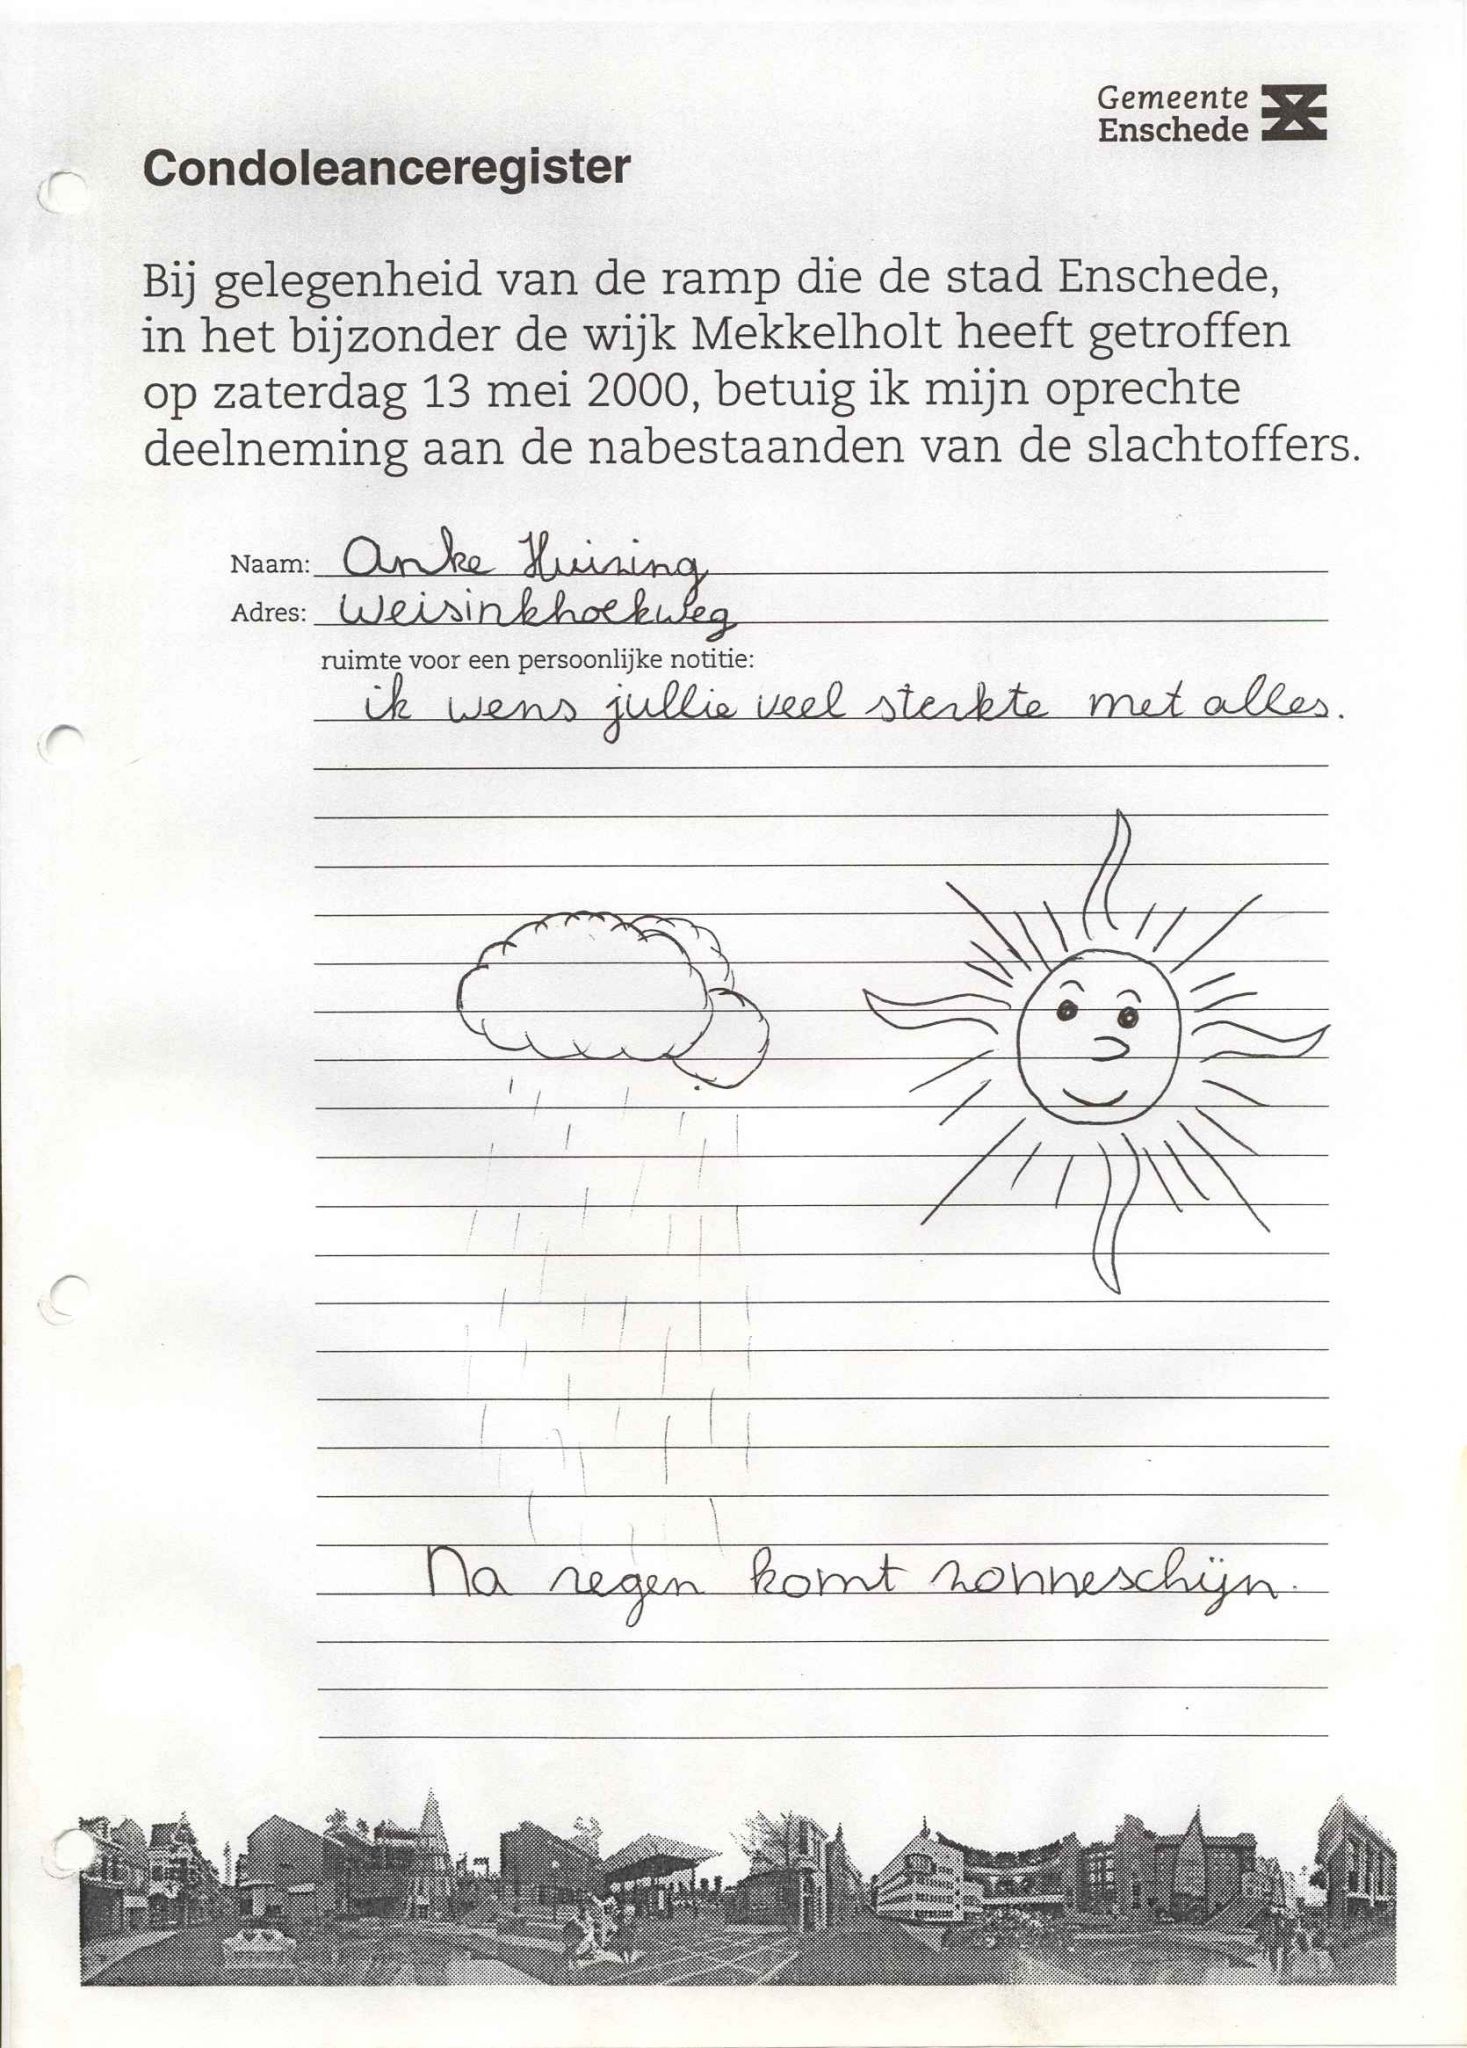 Gemeente
Enschede
Condoleanceregister
Bij gelegenheid van de ramp die de stad Enschede,
in het bijzonder de wijk Mekkelholt heeft getroffen
op zaterdag 13 mei 2000, betuig ik mijn oprechte
deelneming aan de nabestaanden van de slachtoffers.
Naam: Anke Huizing
Adres: Weisinkhoekweg
ruimte voor een persoonlijke notitie:
ik wens jullie veel sterkte met alles.
Na regen komt zonneschijn.